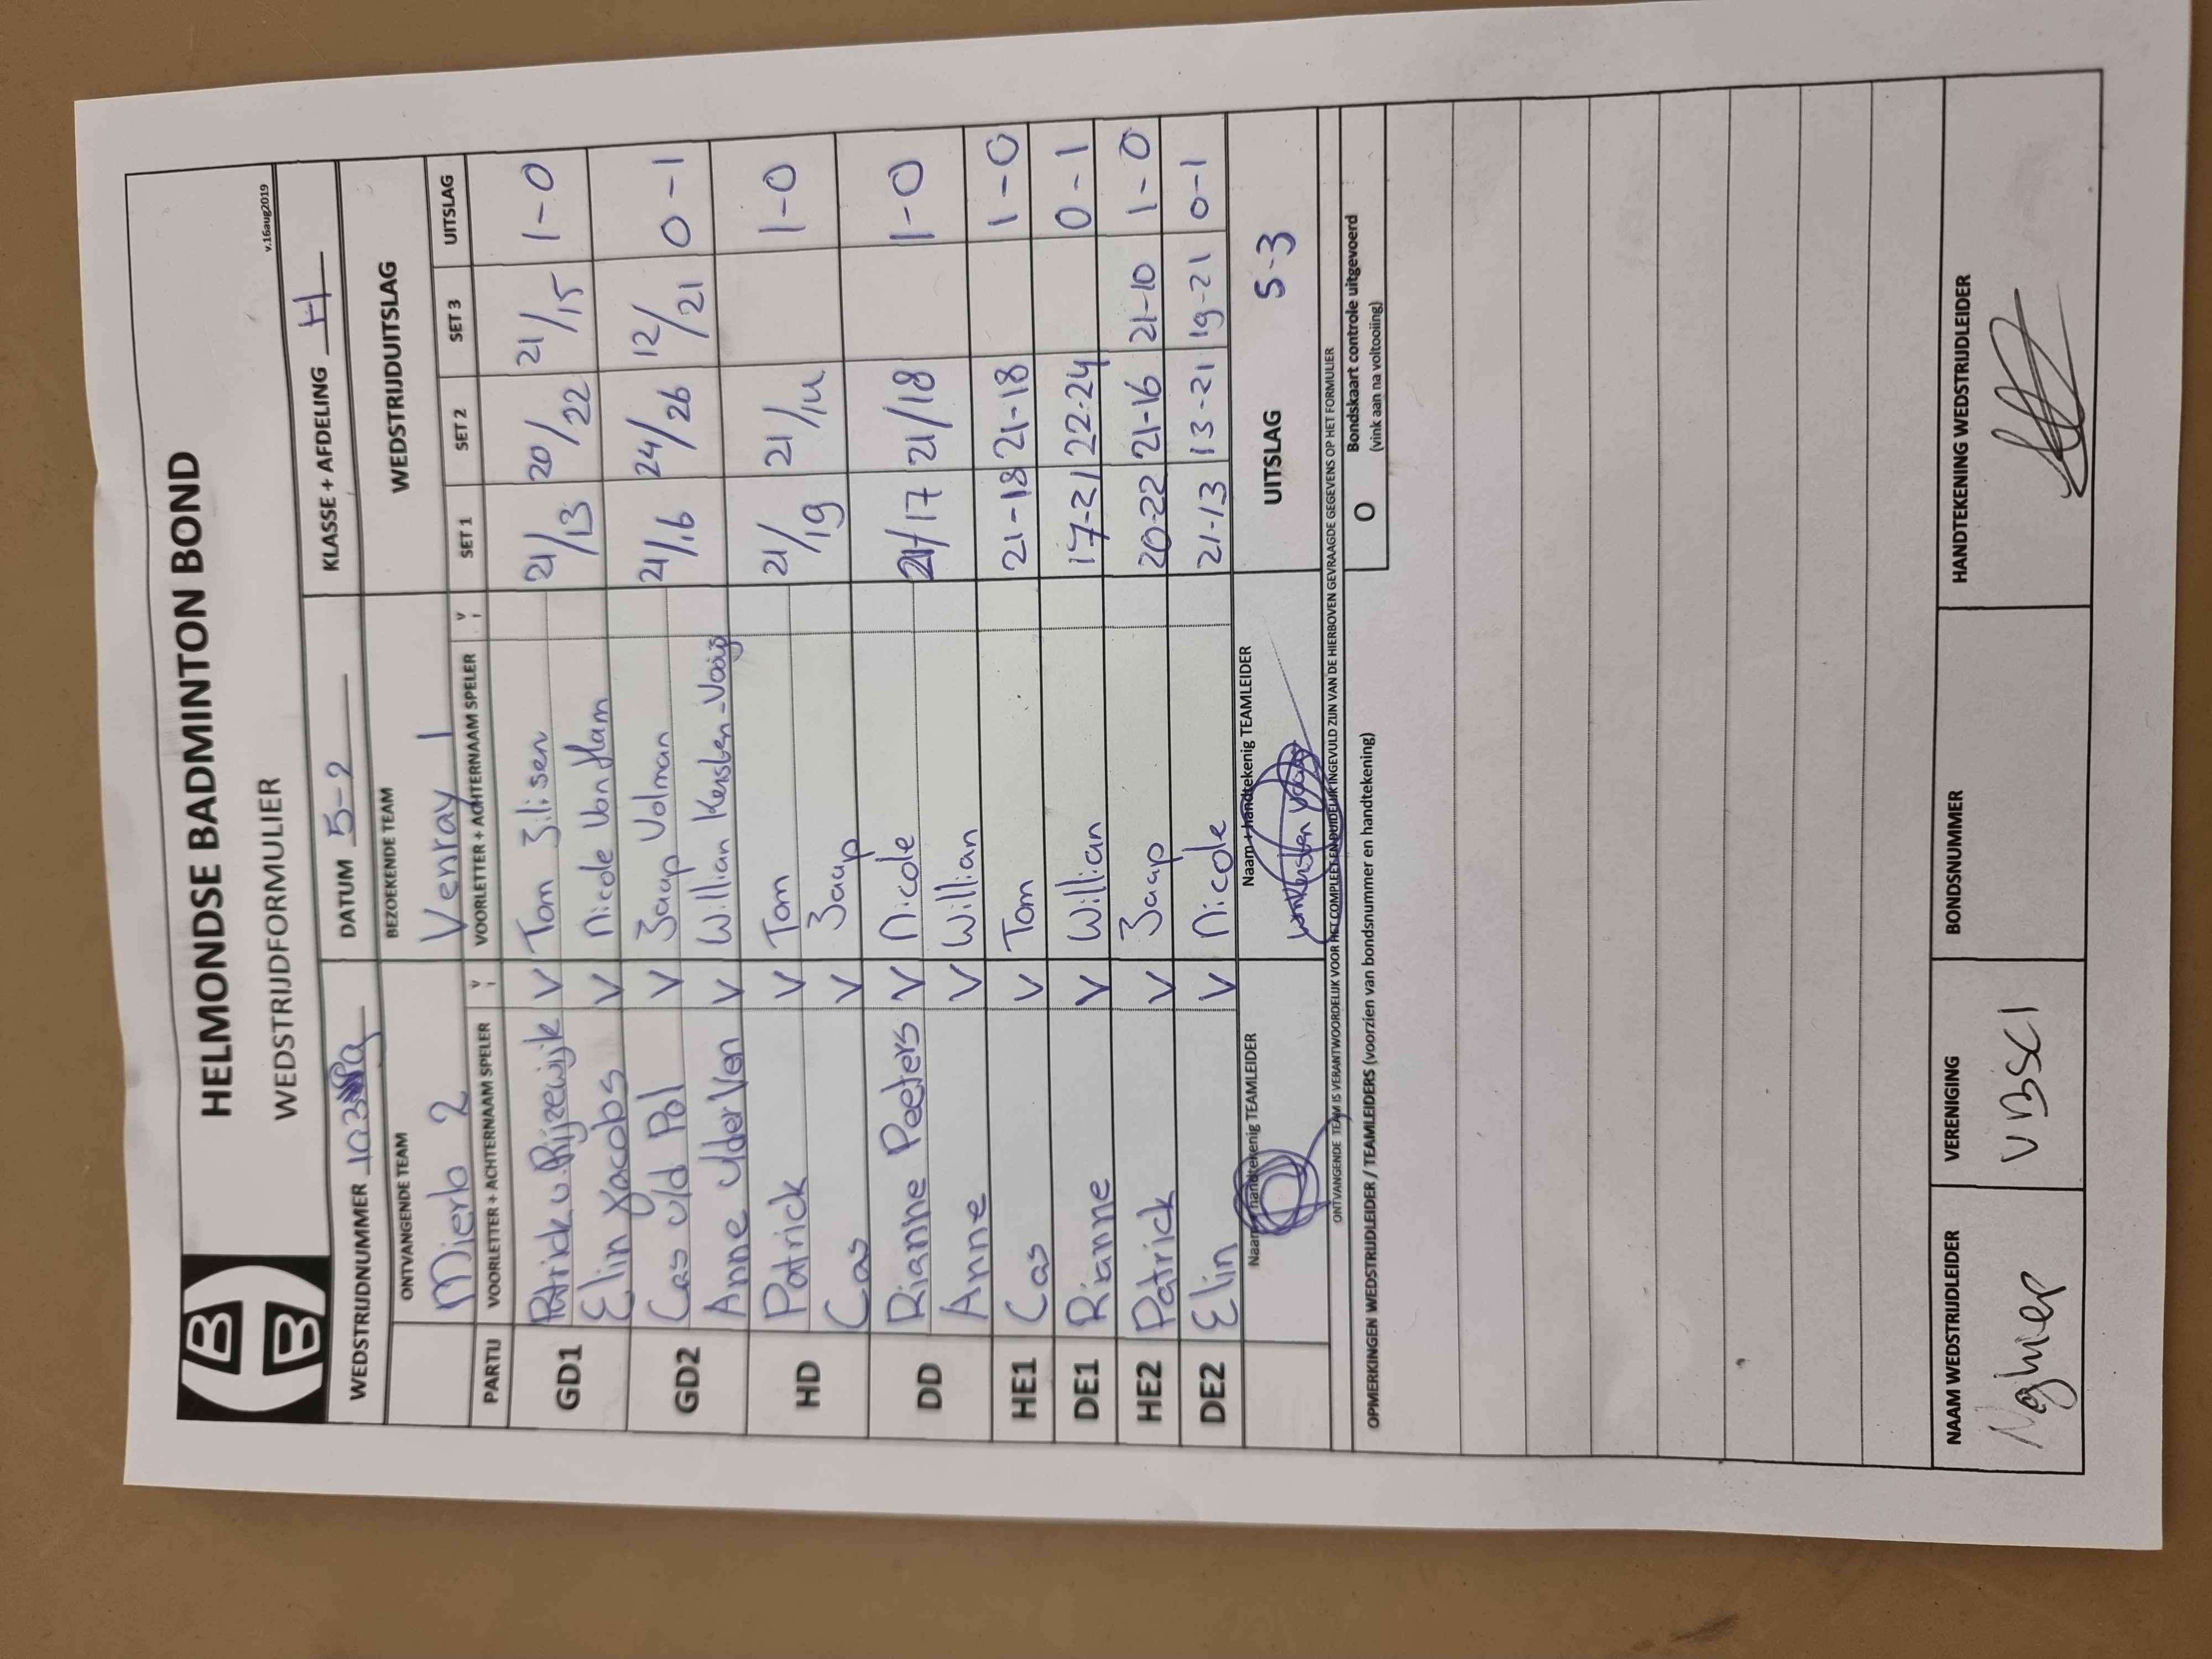 HELMONDSE BADMINTON BOND
WEDSTRIJDFORMULIER
v.16aug2019
WEDSTRIJDNUMMER DATUM 5-2 KLASSE + AFDELING H
ONTVANGENDE TEAM BEZOEKENDE TEAM WEDSTRIJDUITSLAG
Mierlo 2 Venray 1
PARTIJ VOORLETTER + ACHTERNAAM SPELER V VOORLETTER + ACHTERNAAM SPELER V SET 1 SET 2 SET 3 UITSLAG
GD1 Patrick v Rijzewijk V Tom Jilisen 21/13 20/22 21/15 1-0
Elin Jacobs V Nicole van Ham
GD2 Cas v/d Pol V Jaap Volman 21/16 24/26 12/21 0-1
Anne v/der Ven V Willian Kersten-Vaags
HD Patrick V Tom 21/19 21/14 1-0
Cas V Jaap
DD Rianne Peeters V Nicole 21/17 21/18 1-0
Anne V Willian
HE1 Cas V Tom 21-18 21-18 1-0
DE1 Rianne V Willian 17-21 22-24 0-1
HE2 Patrick V Jaap 20-22 21-16 21-10 1-0
DE2 Elin V Nicole 21-13 13-21 19-21 0-1
Naam + handtekenig TEAMLEIDER Naam + handtekenig TEAMLEIDER UITSLAG 5-3
ONTVANGENDE TEAM IS VERANTWOORDELIJK VOOR HET COMPLEET EN DUIDELIJK INGEVULD ZIJN VAN DE HIERBOVEN GEVRAAGDE GEGEVENS OP HET FORMULIER
OPMERKINGEN WEDSTRIJDLEIDER / TEAMLEIDERS (voorzien van bondsnummer en handtekening) O Bondskaart controle uitgevoerd
(vink aan na voltooiing)
NAAM WEDSTRIJDLEIDER VERENIGING BONDSNUMMER HANDTEKENING WEDSTRIJDLEIDER
VBSC1